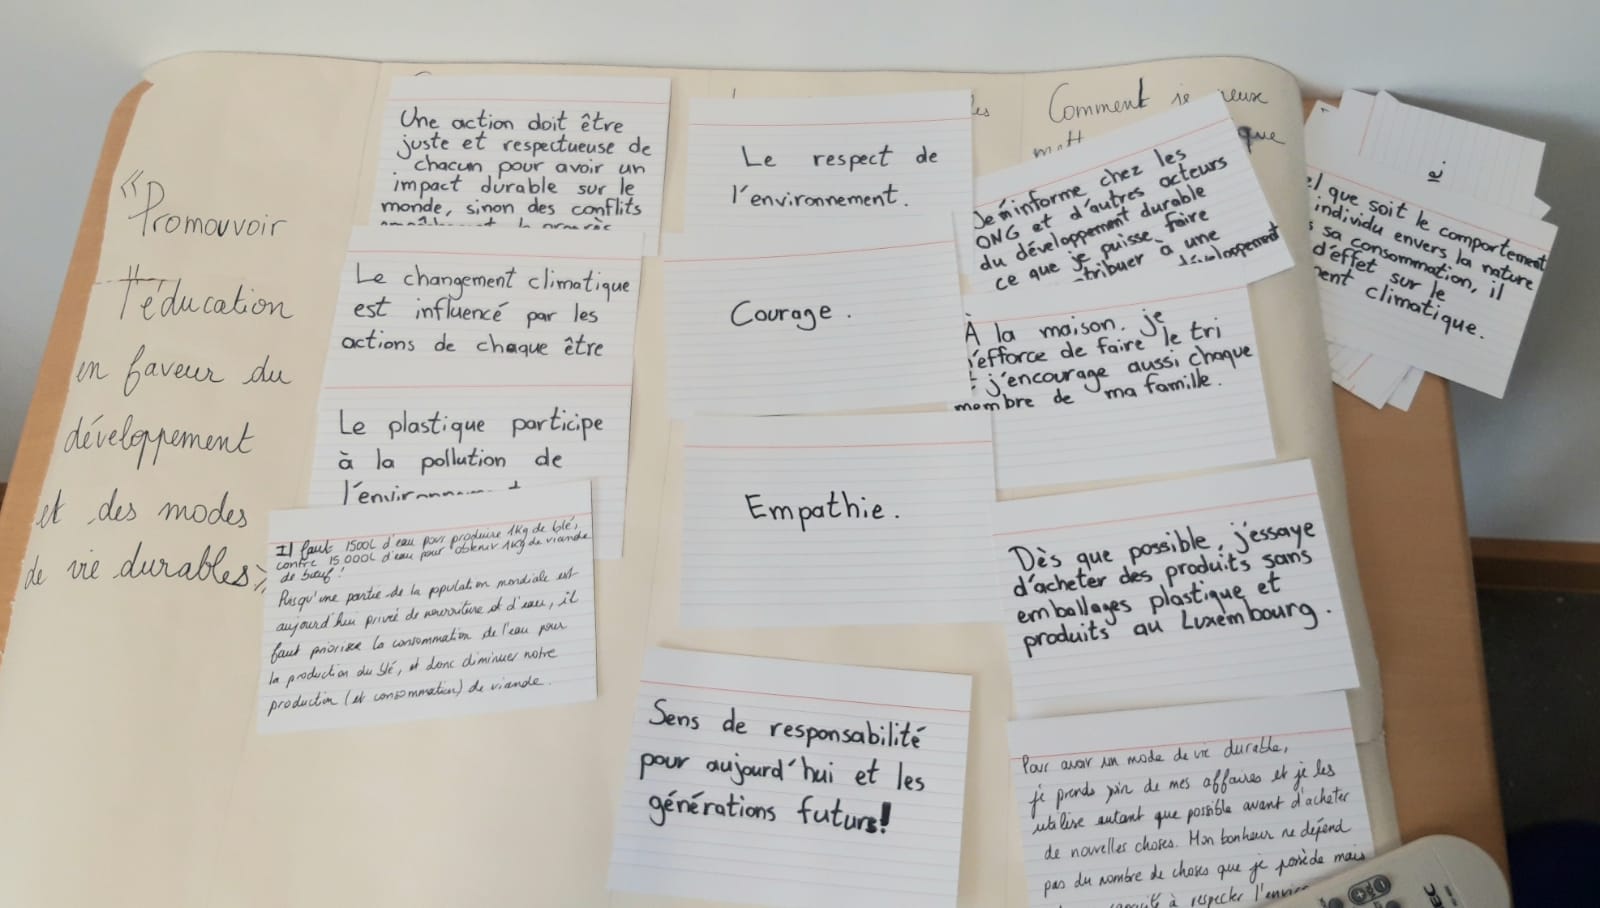 « Promouvoir
l'éducation
en faveur du
développement
et des modes
de vie durables »
Une action doit être
juste et respectueuse de
chacun pour avoir un
impact durable sur le
monde, sinon des conflits
Le changement climatique
est influencé par les
actions de chaque être
Le plastique participe
à la pollution de
Il faut 1500L d'eau pour produire 1Kg de blé,
contre 15 000L d'eau pour obtenir 1Kg de viande
de bœuf !
Puisqu'une partie de la population mondiale est
aujourd'hui privée de nourriture et d'eau, il
faut prioriser la consommation de l'eau pour
la production du blé, et donc diminuer notre
production (et consommation) de viande.
Le respect de
l'environnement.
Courage.
Empathie.
Sens de responsabilité
pour aujourd'hui et les
générations futurs!
Comment je peux
que
Je m'informe chez les
ONG et d'autres acteurs
du développement durable
ce que je puisse faire
à une
développement
À la maison, je
m'efforce de faire le tri
j'encourage aussi chaque
membre de ma famille.
Dès que possible, j'essaye
d'acheter des produits sans
emballages plastique et
produits au Luxembourg.
Pour avoir un mode de vie durable,
je prends soin de mes affaires et je les
utilise autant que possible avant d'acheter
de nouvelles choses. Mon bonheur ne dépend
pas du nombre de choses que je possède mais
à respecter
que soit le comportement
individu envers la nature
sa consommation, il
d'effet sur le
climatique.